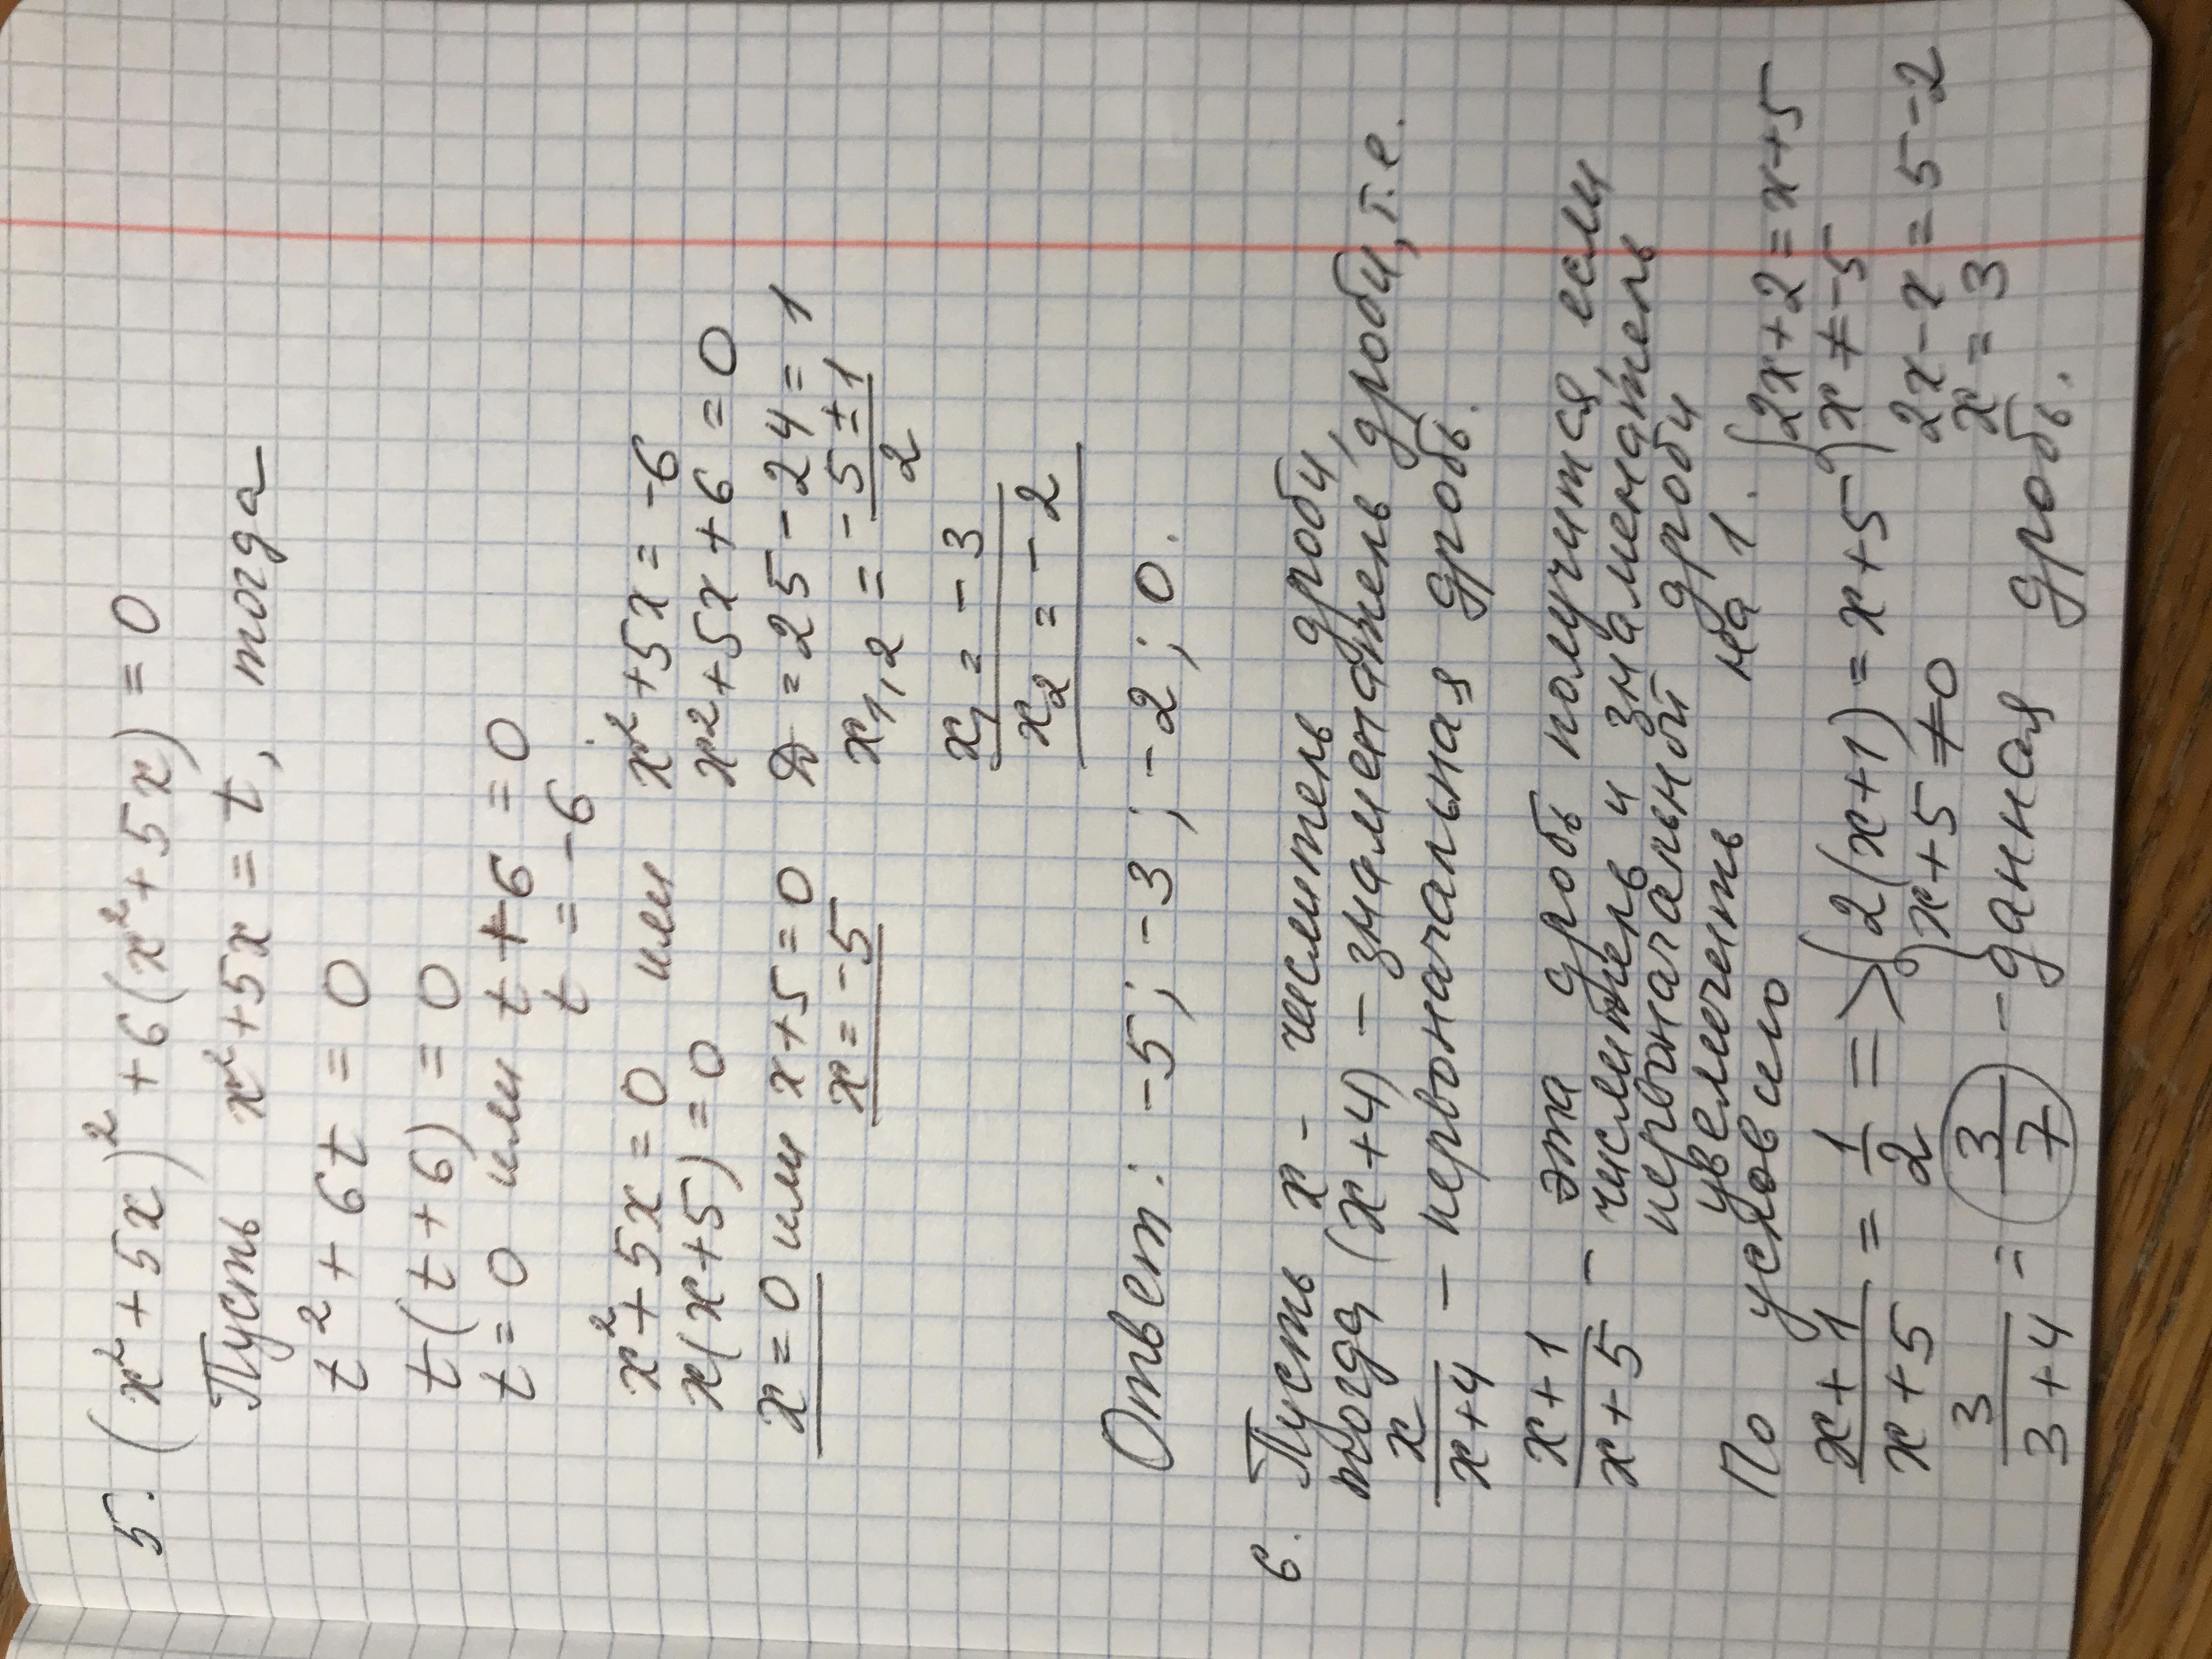 5. (x²+5x)²+6(x²+5x)=0
Пусть x²+5x=t, тогда
t²+6t=0
t(t+6)=0
t=0 или t+6=0
t=-6
x²+5x=0 или x²+5x=-6
x(x+5)=0 x²+5x+6=0
x=0 или x+5=0 D=25-24=1
x=-5 x₁,₂=(-5±1)/2
x₁=-3
x₂=-2
Ответ: -5; -3; -2; 0.
6. Пусть x- числитель дроби,
тогда (x+4)-знаменатель дроби, т.е.
x/(x+4) - первоначальная дробь.
(x+1)/(x+5) - эта дробь получится, если
числитель и знаменатель
первоначальной дроби
увеличить на 1.
По условию
(x+1)/(x+5) = 1/2 => {2(x+1)=x+5 {2x+2=x+5
x+5≠0 x≠-5
2x-x=5-2
x=3
3/(3+4) = 3/7 - данная дробь.